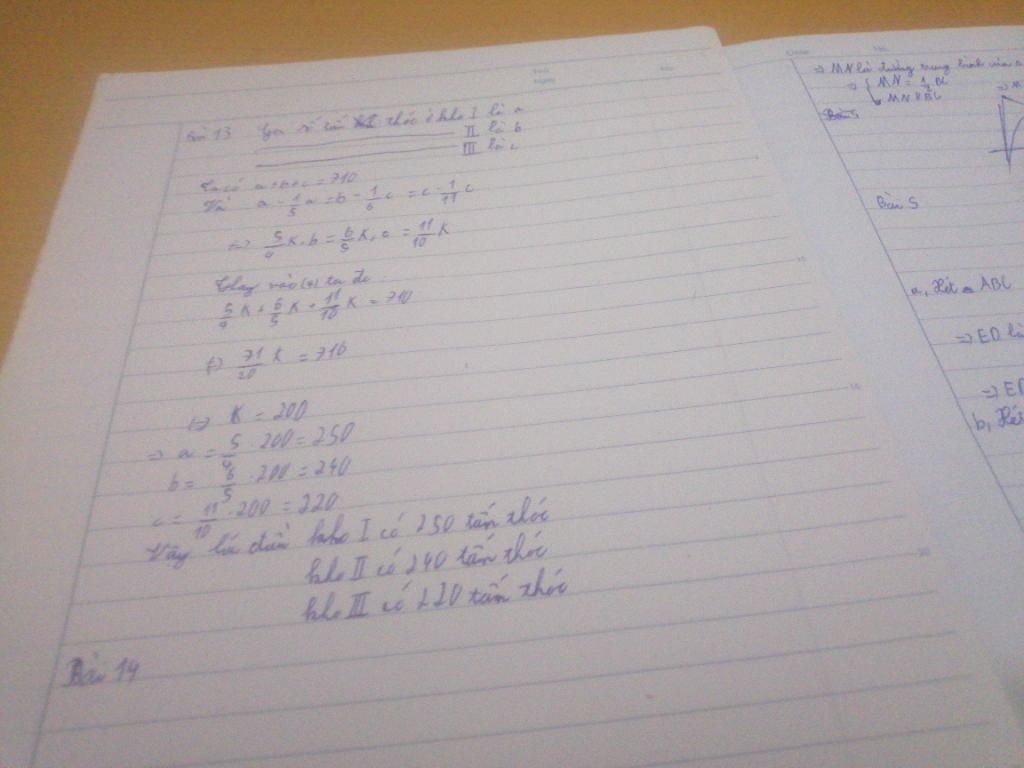 Bài 13 Gọi số tấn thóc ở kho I là a
II là b
III là c
Ta có a+b+c = 710
Và a - 1/5 a = b - 1/6 c = c - 1/11 c
(=) 5/4 K, b = 6/5 K, c = 11/10 K
Thay vào (*) ta đc
5/4 K + 6/5 K + 11/10 K = 710
(=) 71/20 K = 710
(=) K = 200
=> a = 5/4 . 200 = 250
b = 6/5 . 200 = 240
c = 11/10 . 200 = 220
Vậy lúc đầu kho I có 250 tấn thóc
kho II có 240 tấn thóc
kho III có 220 tấn thóc
Bài 14
=> MN là đường trung bình của
=> { MN = 1/2 BC
MN // BC
Bài 5
a, Xét △ ABC
=> ED là
=> ED
b, Xét